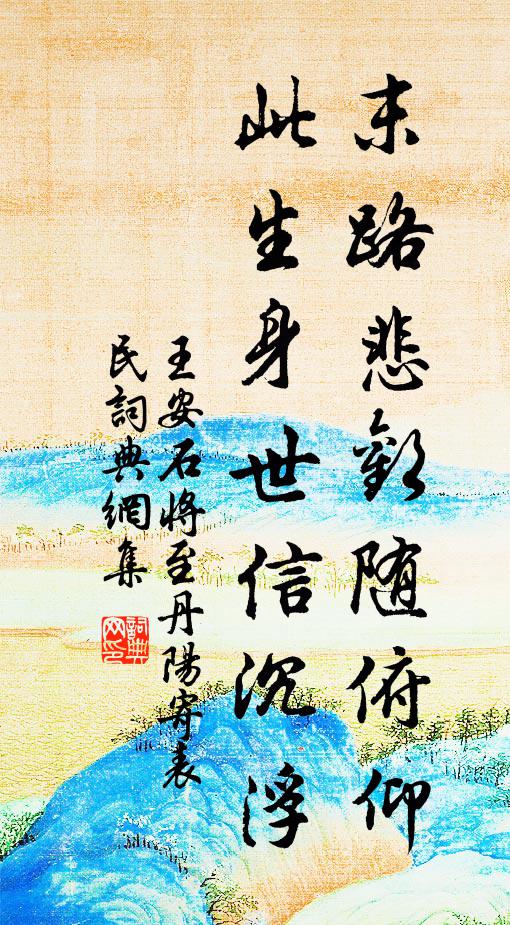 末路悲歡随俯仰
此生身世信沉浮
王安石將至丹陽寄表
民詞典網集
詞典
网印